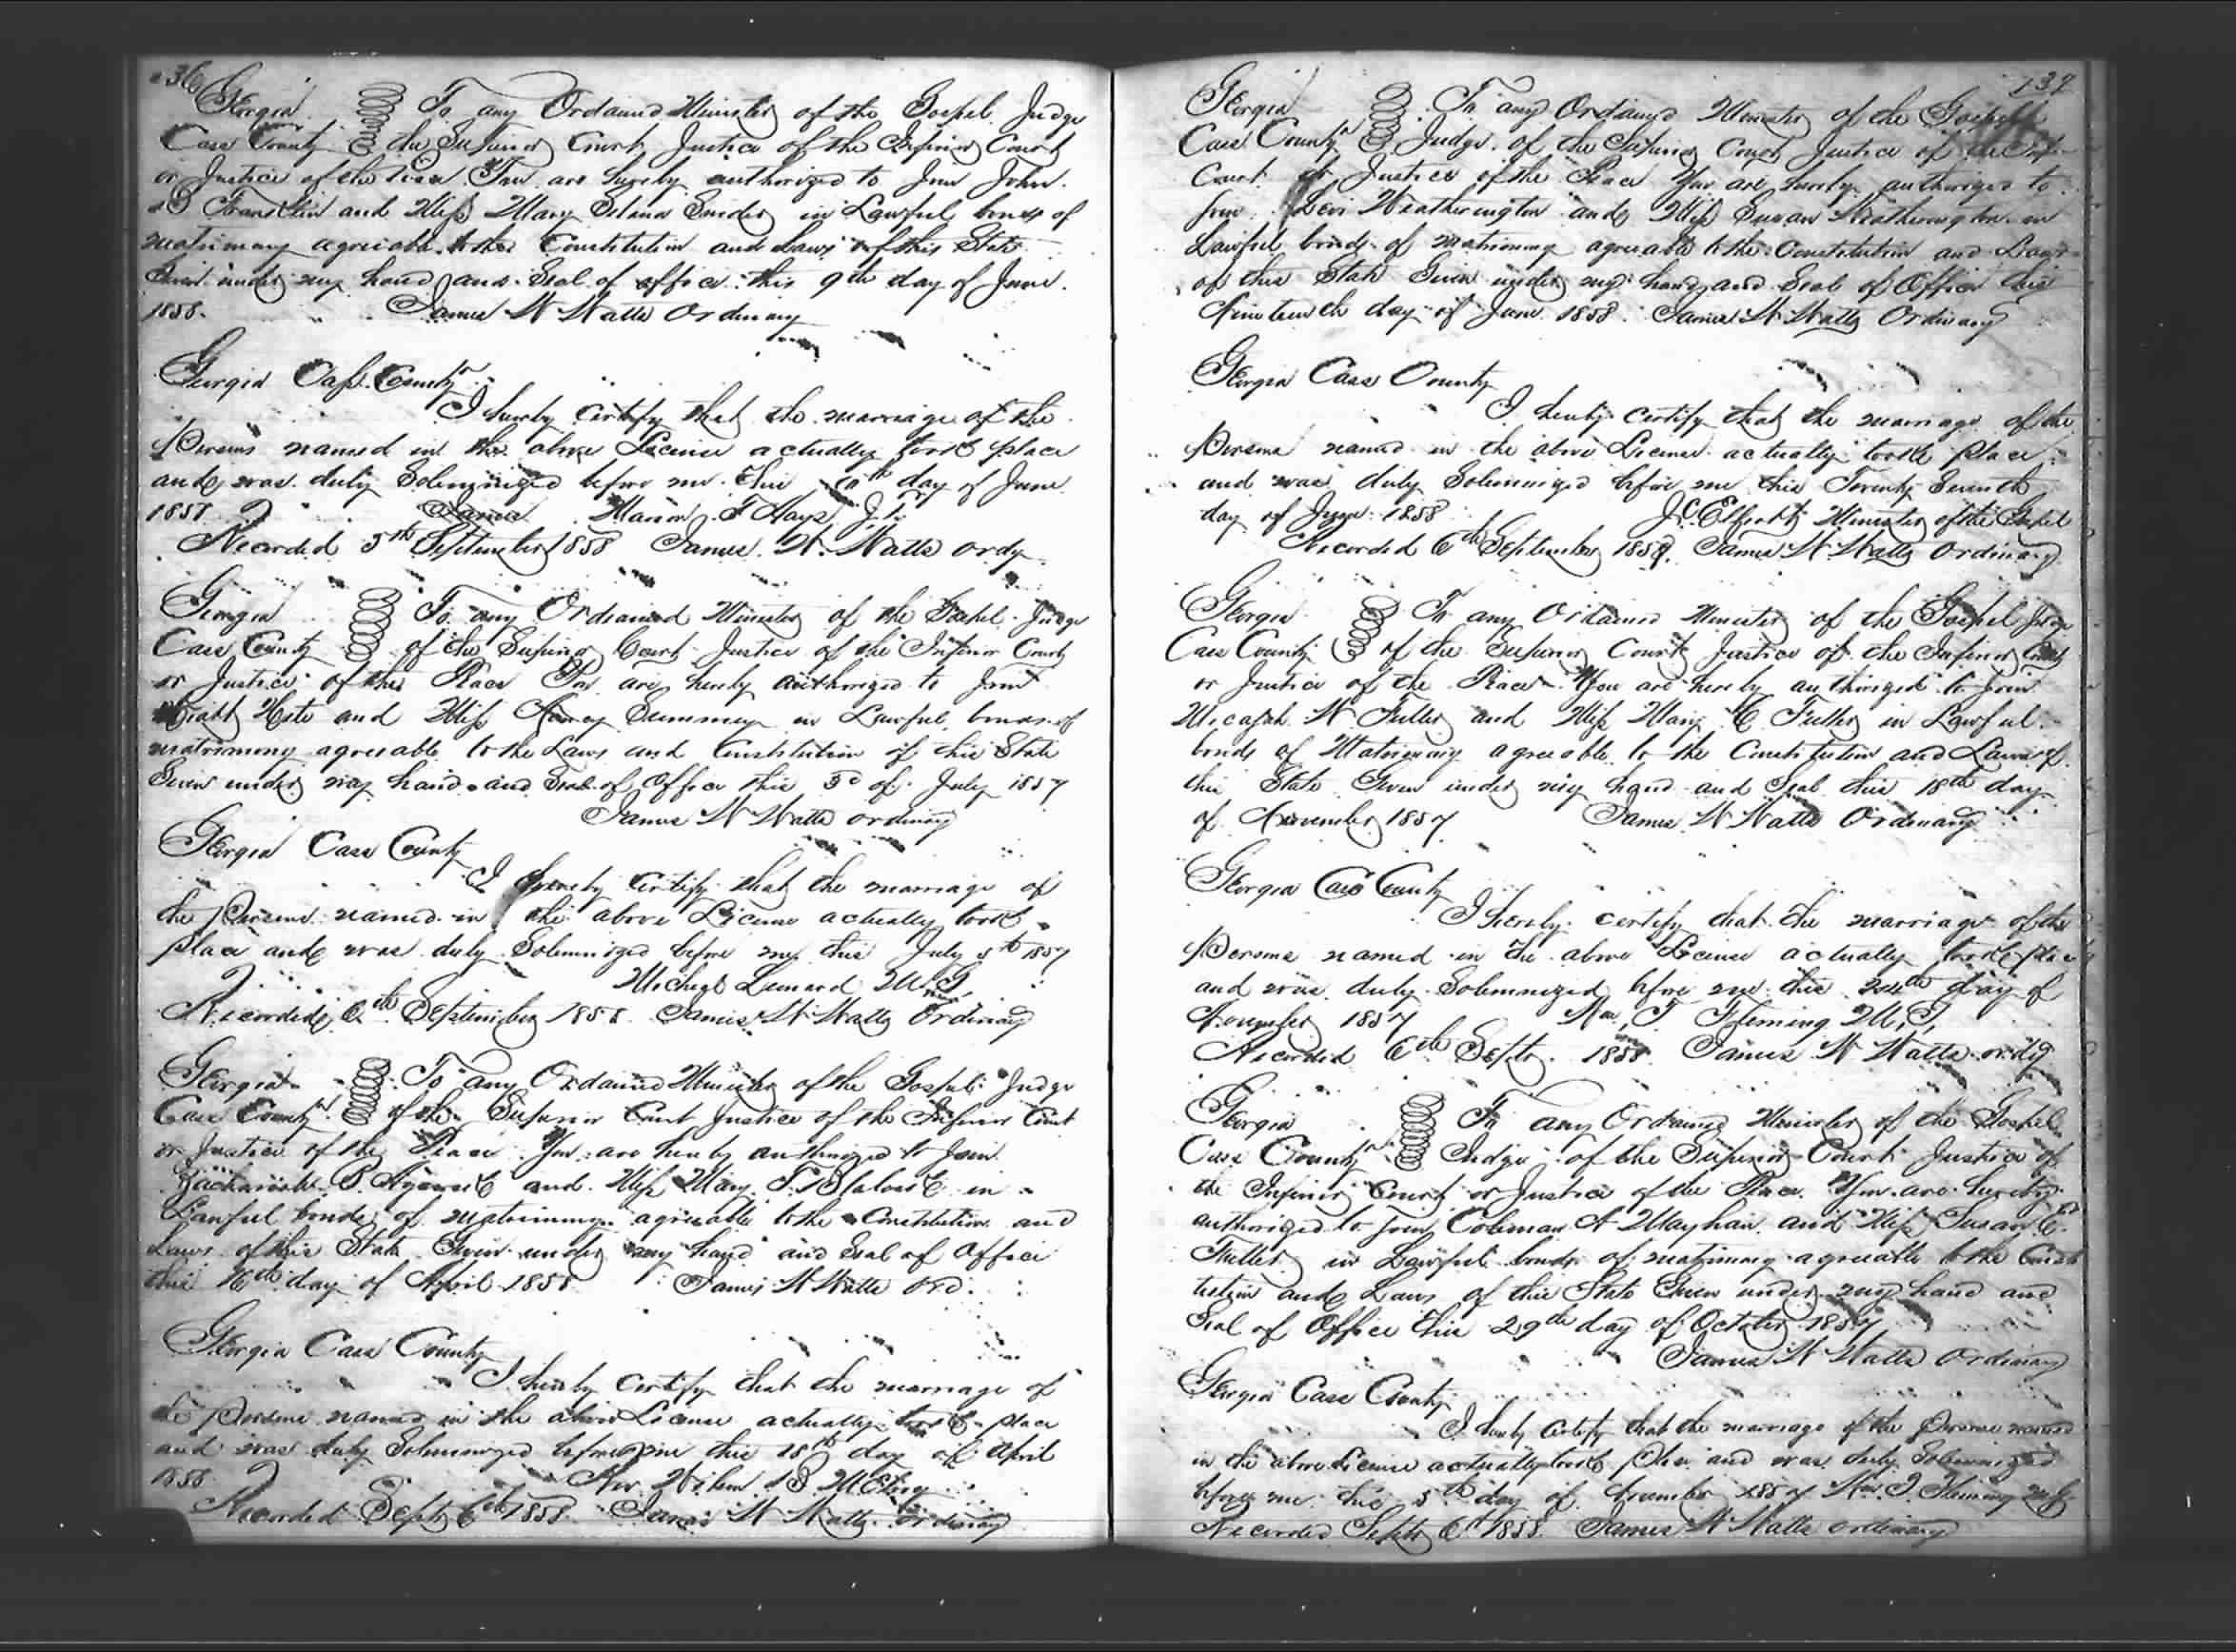 136
Georgia To any Ordained Minister of the Gospel Judge
Cass County of the Superior Court Justice of the Inferior Court
or Justice of the You are hereby authorized to Join John
B Franklin and Miss Mary Snider in Lawful bonds of
matrimony agreeable to the Constitution and Laws of this State
Given under my hand and Seal of office this 9th day of June
1858. James W Watts Ordinary
Georgia Cass County
I hereby certify that the marriage of the
Persons named in the above License actually took place
and was duly Solemnized before me This 10th day of June
1858 Marion F Hays J.P.
Recorded 5th September 1858 James W. Watts ordy
Georgia To any Ordained Minister of the Gospel Judge
Cass County of the Superior Court Justice of the Inferior Court
or Justice of the Peace You are hereby authorized to Join
and Miss Nancy Summey in Lawful bonds of
matrimony agreeable to the Laws and Constitution of this State
Given under my hand and Seal of Office this 3d of July 1857
James W Watts ordinary
Georgia Cass County
I hereby certify that the marriage of
the Persons named in the above License actually took
place and was duly Solemnized before me this July 5th 1857
Lenard M.G.
Recorded 6th September 1858 James W Watts Ordinary
Georgia To any Ordained Minister of the Gospel Judge
Cass County of the Superior Court Justice of the Inferior Court
or Justice of the Peace You are hereby authorized to Join
P. and Miss Mary T. Blalock in
Lawful bonds of matrimony agreeable to the Constitution and
Laws of this State Given under my hand and Seal of Office
this 16th day of April 1858 James W Watts Ord.
Georgia Cass County
I hereby certify that the marriage of
the Persons named in the above License actually took place
and was duly Solemnized before me this 18th day of April
1858 Rev. B McElroy
Recorded Sept 6th 1858 James W Watts ordinary
137
Georgia To any Ordained Minister of the Gospel
Cass County Judge of the Superior Court Justice of the Inf
Court or Justice of the Peace You are hereby authorized to
Join Levi Weatherington and Miss Susan Weatherington in
Lawful bonds of matrimony agreeable to the Constitution and Laws
of this State Given under my hand and Seal of Office this
Nineteenth day of June 1858. James W Watts Ordinary
Georgia Cass County
I hereby certify that the marriage of the
Persons named in the above License actually took place
and was duly Solemnized before me this Twenty Seventh
day of June 1858 J.C. Minister of the Gospel
Recorded 6th September 1858. James W Watts Ordinary
Georgia To any Ordained Minister of the Gospel Judge
Cass County of the Superior Court Justice of the Inferior Court
or Justice of the Peace You are hereby authorized to Join
Micajah W Fuller and Miss Mary C Fuller in Lawful
bonds of Matrimony agreeable to the Constitution and Laws of
this State Given under my hand and Seal this 18th day
of November 1857 James W Watts Ordinary
Georgia Cass County
I hereby certify that the marriage of the
Persons named in the above License actually took place
and was duly Solemnized before me this 24th day of
November 1857 Wm. J Fleming M.G.
Recorded 6th Sept. 1858 James W Watts ordy
Georgia To any Ordained Minister of the Gospel
Cass County Judge of the Superior Court Justice of
the Inferior Court or Justice of the Peace You are hereby
authorized to Join Coleman A Mayhan and Miss Susan E
Fuller in Lawful bonds of matrimony agreeable to the Consti
tution and Laws of this State Given under my hand and
Seal of Office this 29th day of October 1857
James W Watts Ordinary
Georgia Cass County
I hereby certify that the marriage of the Persons named
in the above License actually took Place and was duly Solemnized
before me this 5th day of November 1857 Wm. J. Fleming M.G.
Recorded Sept 6th 1858 James W Watts ordinary